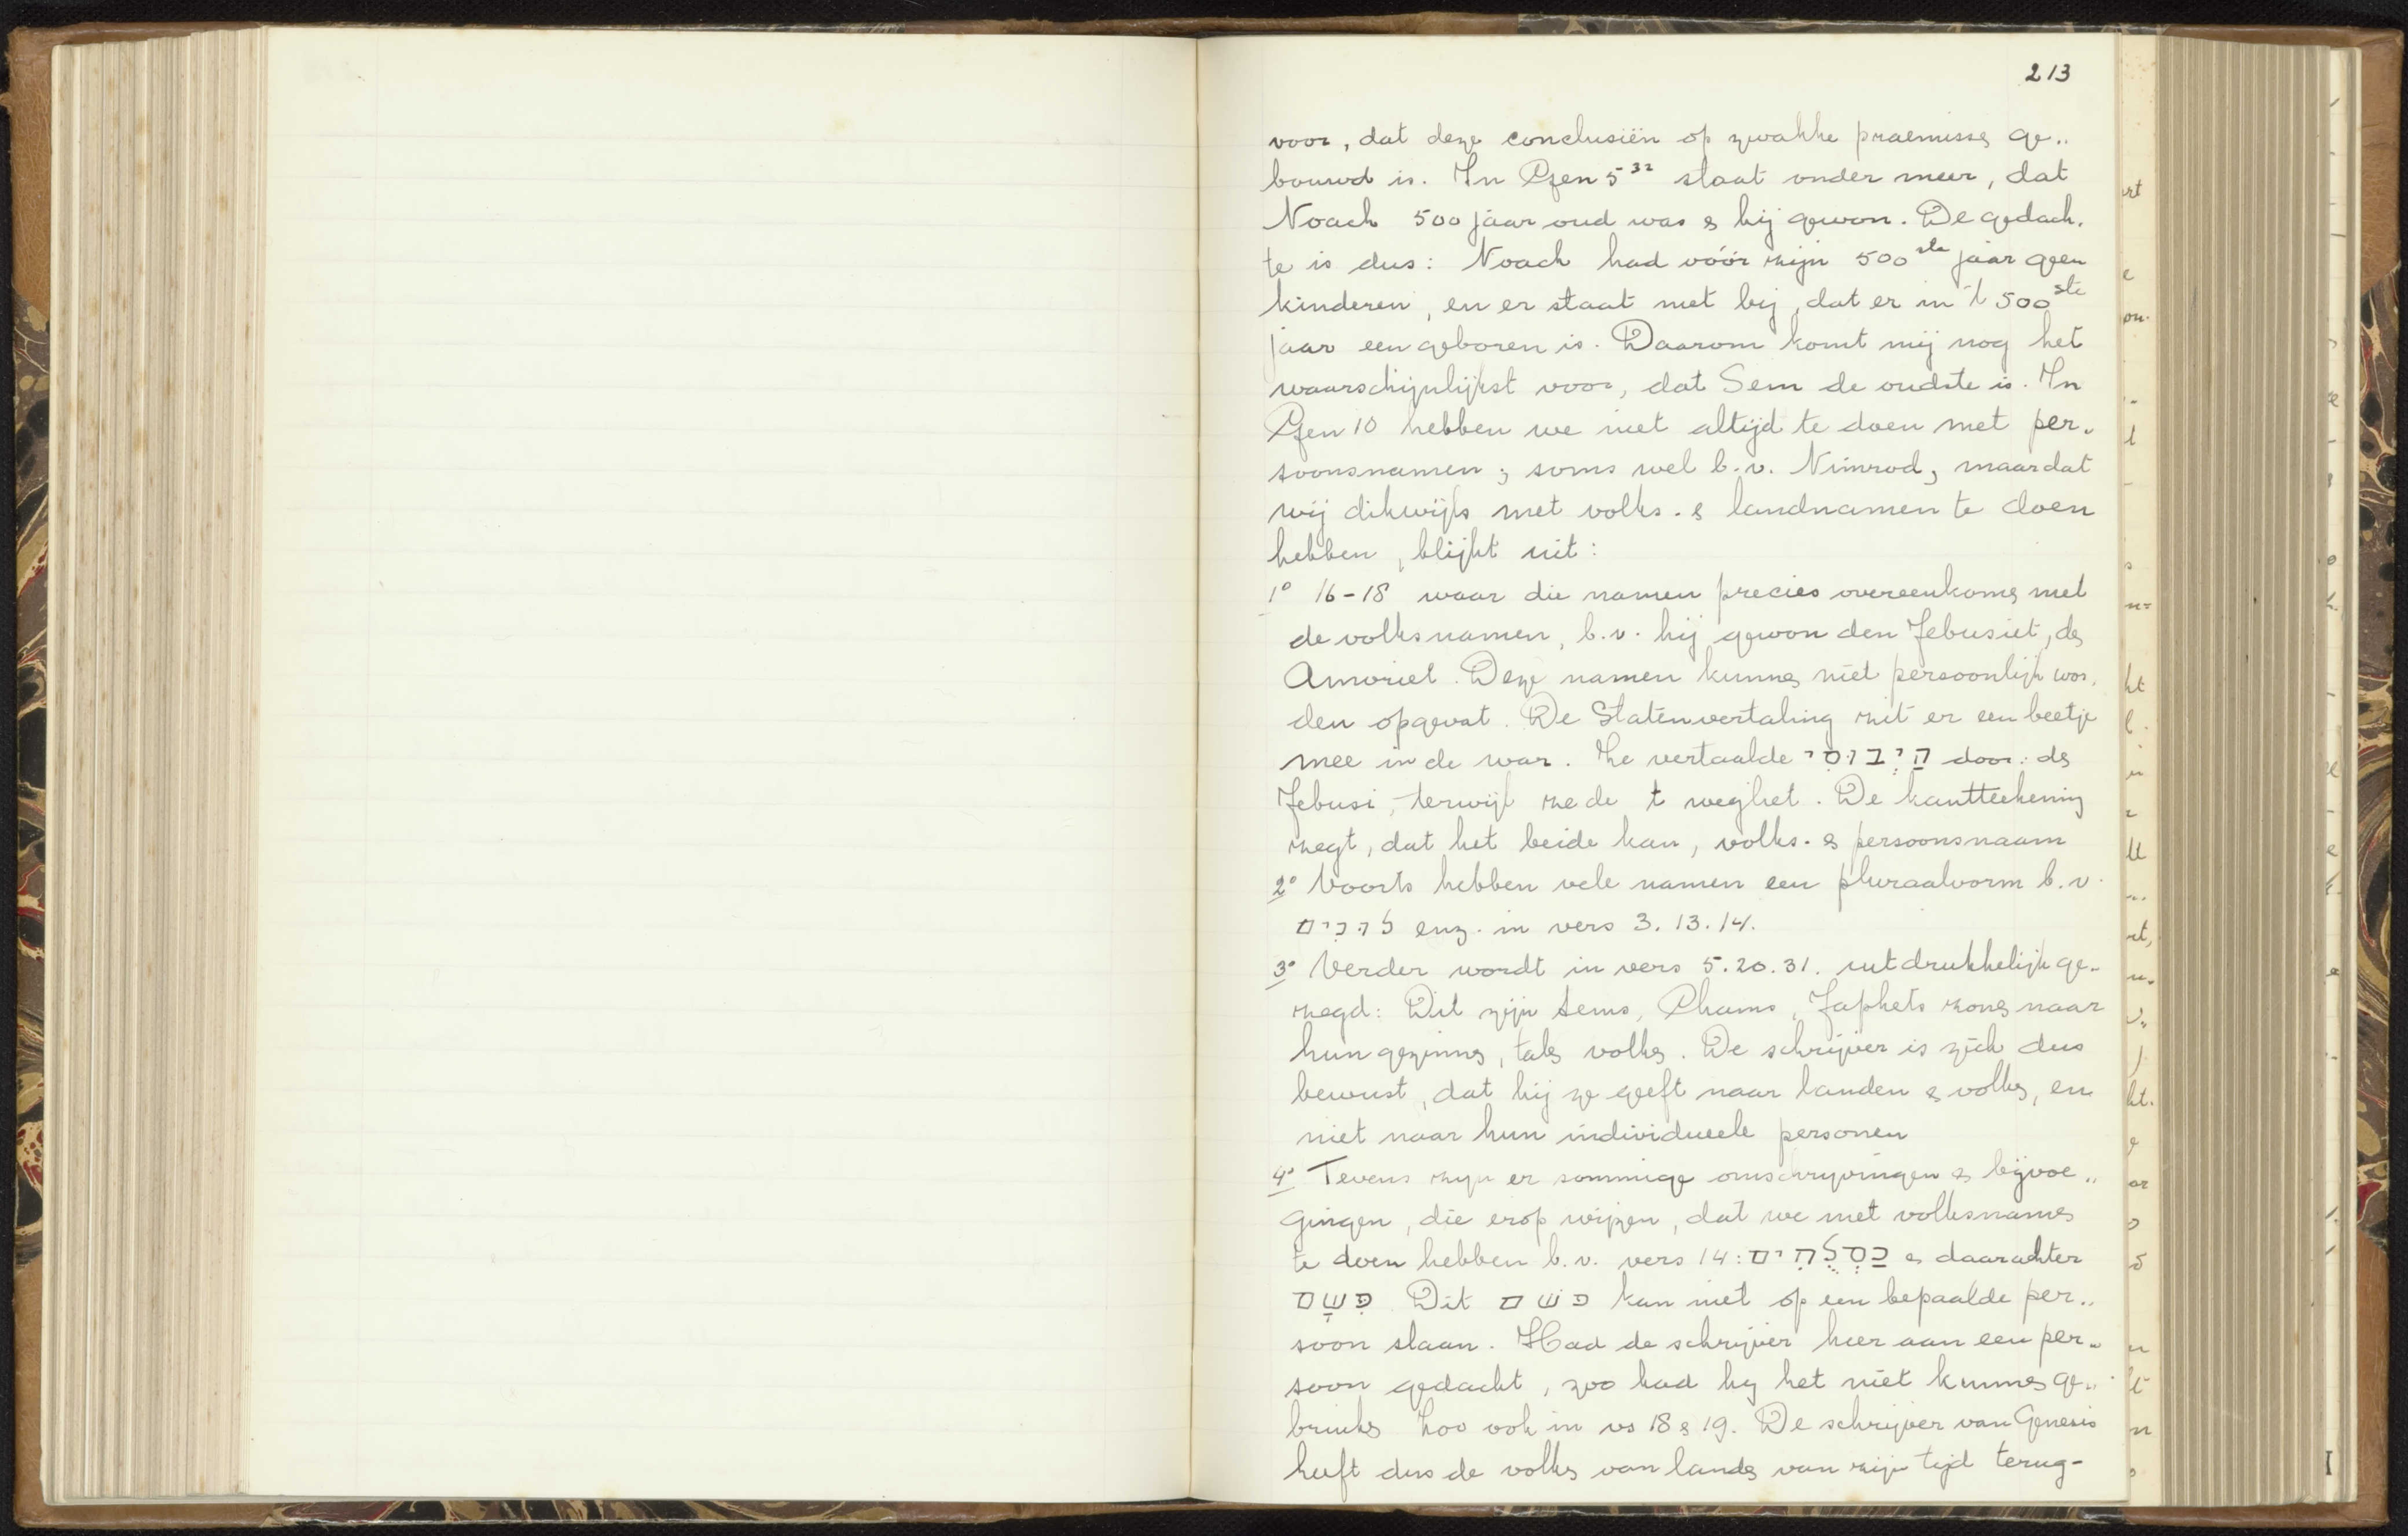 213
voor, dat deze conclusiën op zwakke praemisse ge„
bouwd is. In Gen 5³² staat onder meer, dat
Noach 500 jaar oud was & hij gewon. De gedach„
te is dus: Noach had vóór zijn 500ste jaar geen
kinderen, en er staat niet bij, dat er in 't 500ste
jaar een geboren is. Daarom komt mij nog het
waarschijnlijkst voor, dat Sem de oudste is. In
Gen 10 hebben we niet altijd te doen met per„
soonsnamen; soms wel b.v. Nimrod, maar dat
wij dikwijls met volks- & landnamen te doen
hebben, blijkt uit:
1° 16-18 waar die namen precies overeenkomen met
de volksnamen, b.v. hij gewon den Jebusiet, den
Amoriet. Deze namen kunnen niet persoonlijk wor„
den opgevat. De Statenvertaling zit er een beetje
mee in de war. Ze vertaalde הַיְבוּסִי door: den
Jebusi, terwijl ze de t weglet. De kantteekening
zegt, dat het beide kan, volks- & persoonsnaam
2° Voorts hebben vele namen een pluraalvorm b.v.
להבים enz. in vers 3.13.14.
3° Verder wordt in vers 5.20.31. uitdrukkelijk ge„
zegd: Dit zijn Sems, Chams, Japhets zonen naar
hun gezinnen, talen volken. De schrijver is zich dus
bewust, dat hij ze geeft naar landen & volken, en
niet naar hun individueele personen
4° Tevens zijn er sommige omschrijvingen & bijvoe„
gingen, die erop wijzen, dat we met volksnamen
te doen hebben b.v. vers 14: כַּסְלֻחִים & daarachter
מִשָּׁם Dit משם kan niet op een bepaalde per„
soon slaan. Had de schrijver hier aan een per„
soon gedacht, zoo had hij het niet kunnen ge„
bruiken Zoo ook in vs 18 & 19. De schrijver van Genesis
heeft dus de volken van landen van zijn tijd terug-